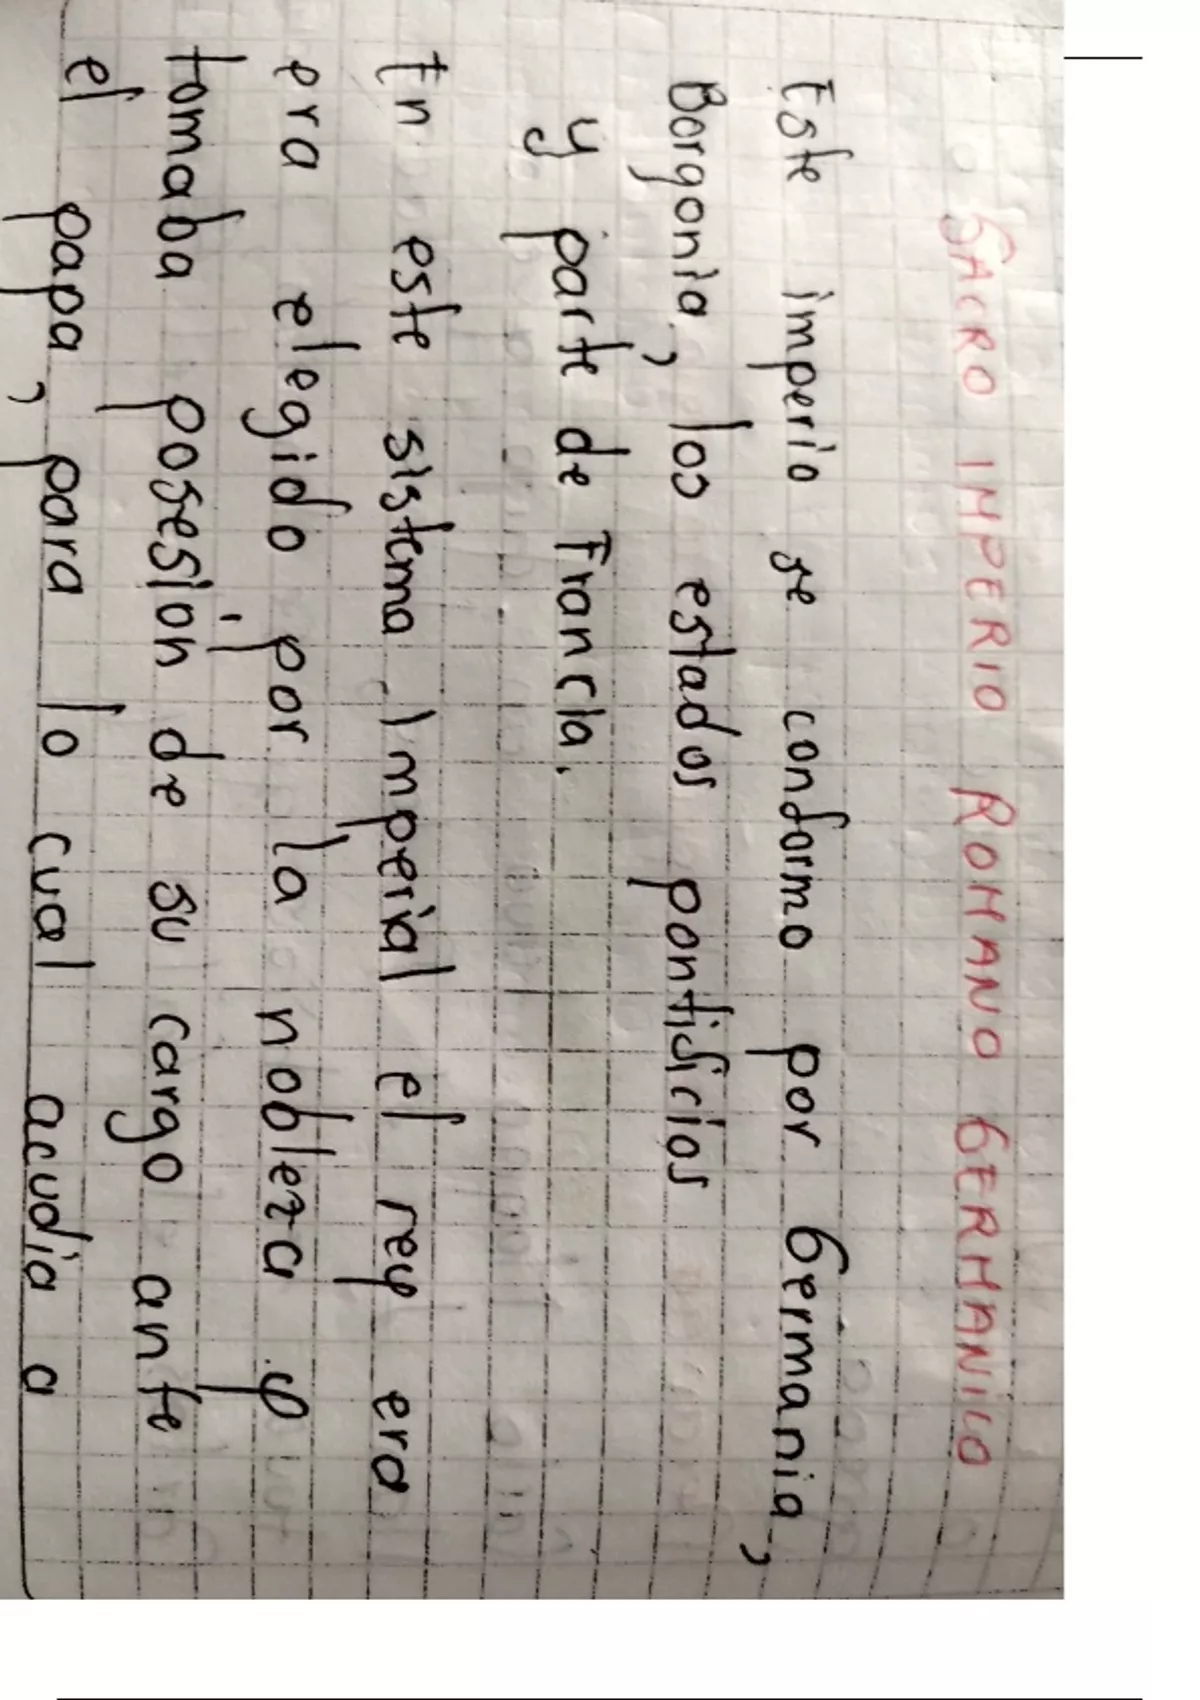 SACRO IMPERIO ROMANO GERMANICO
Este imperio se conformo por Germania,
Borgonia, los estados pontificios
y parte de Francia.
En este sistema Imperial el rey era
era elegido por la nobleza y
tomaba posesión de su cargo ante
el papa, para lo cual acudia a